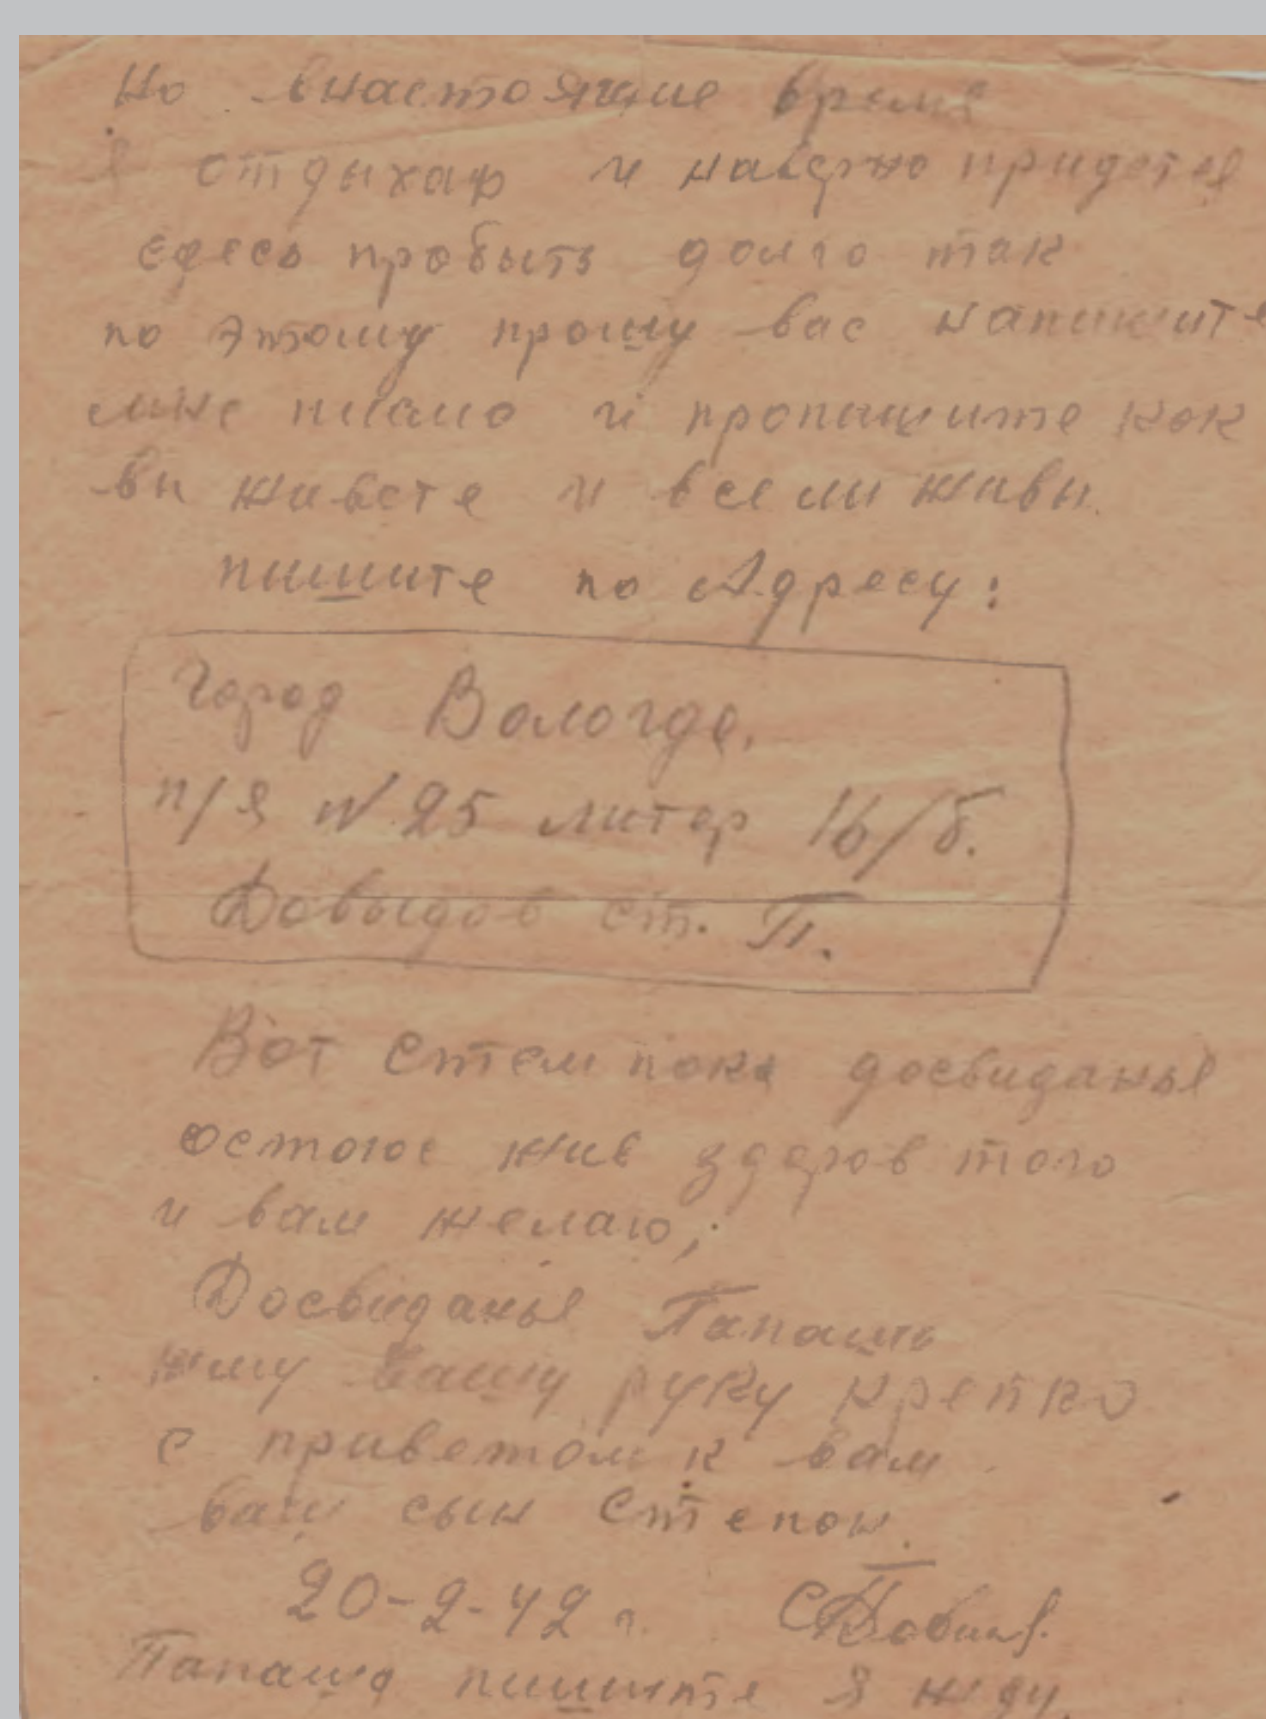 Но внастоящие время
я отдыхаю и наверно придется
сдесь пробыть долго так
по этому прошу вас напишите
мне писмо и пропишите как
вы живете и все ли живы.
пишите по Адресу:
Город Вологда.
п/я №25 литер 16/б.
Довыдов ст. П.
Вот стем пока досвиданья
остоюс жив здоров того
и вам желаю;
Досвиданья Папаша
жму вашу руку крепко
с приветом к вам
ваш сын Степон.
20-2-42 г.
Папаша пишите я жду.